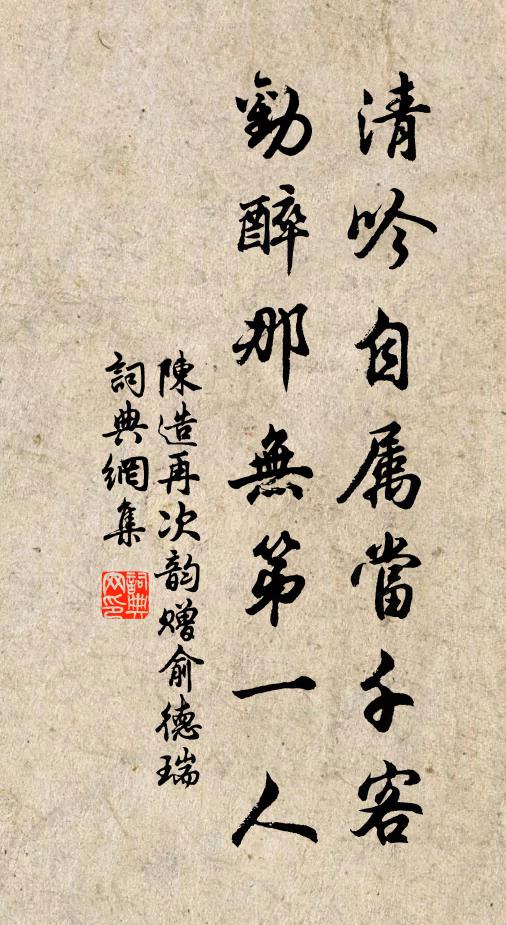 清吟自属當千客
勸醉那無第一人
陳造再次韵贈俞德瑞
詞典網集
詞典网印